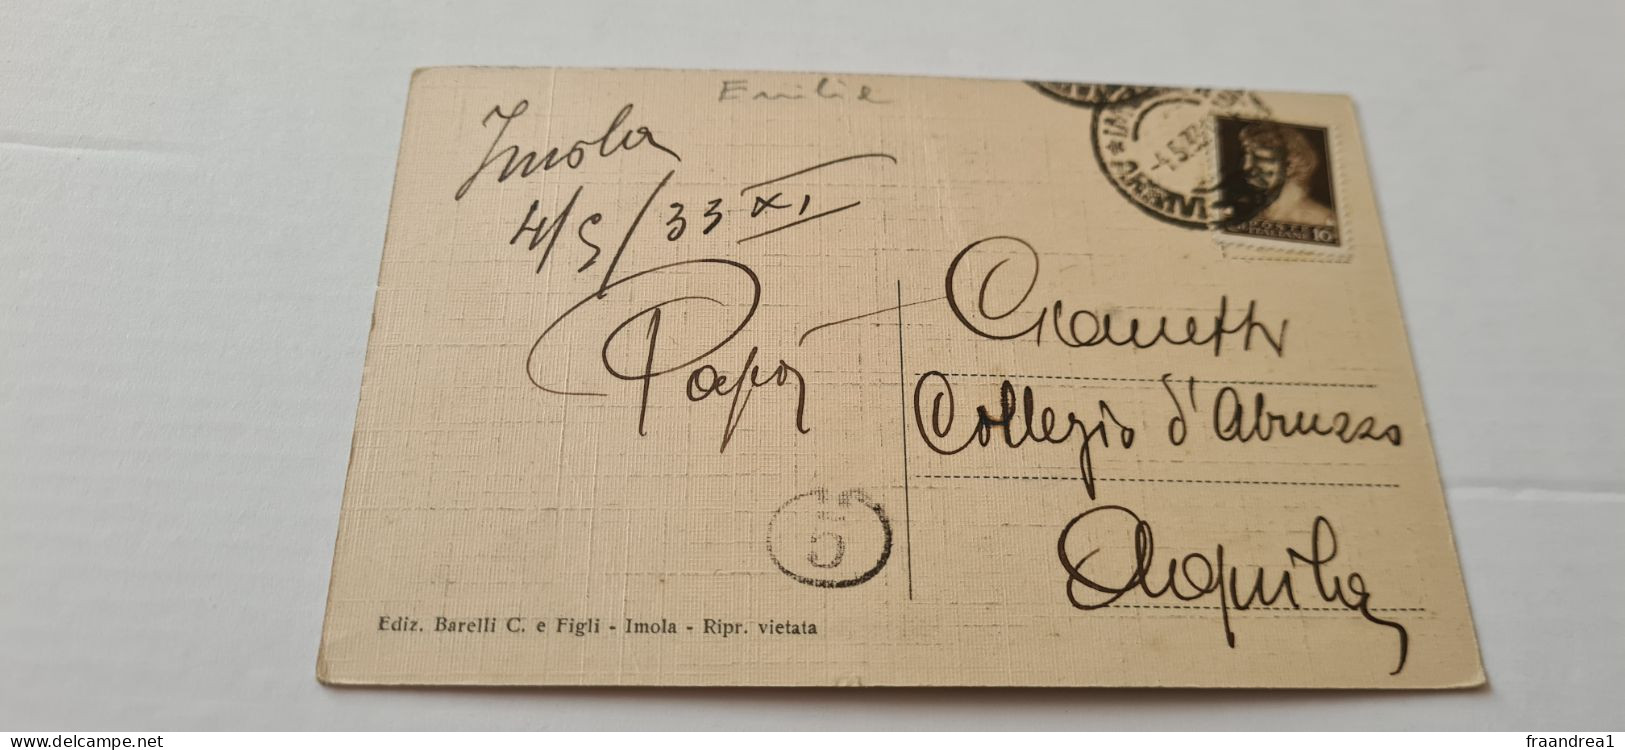 Emilie
Imola
4/5/33 XI
Papà
Gianetti
Collegio d'Abruzzo
Aquila
5
-4.5.33
POSTE
ITALIANE 10
Ediz. Barelli C. e Figli - Imola - Ripr. vietata
www.delcampe.net
fraandrea1